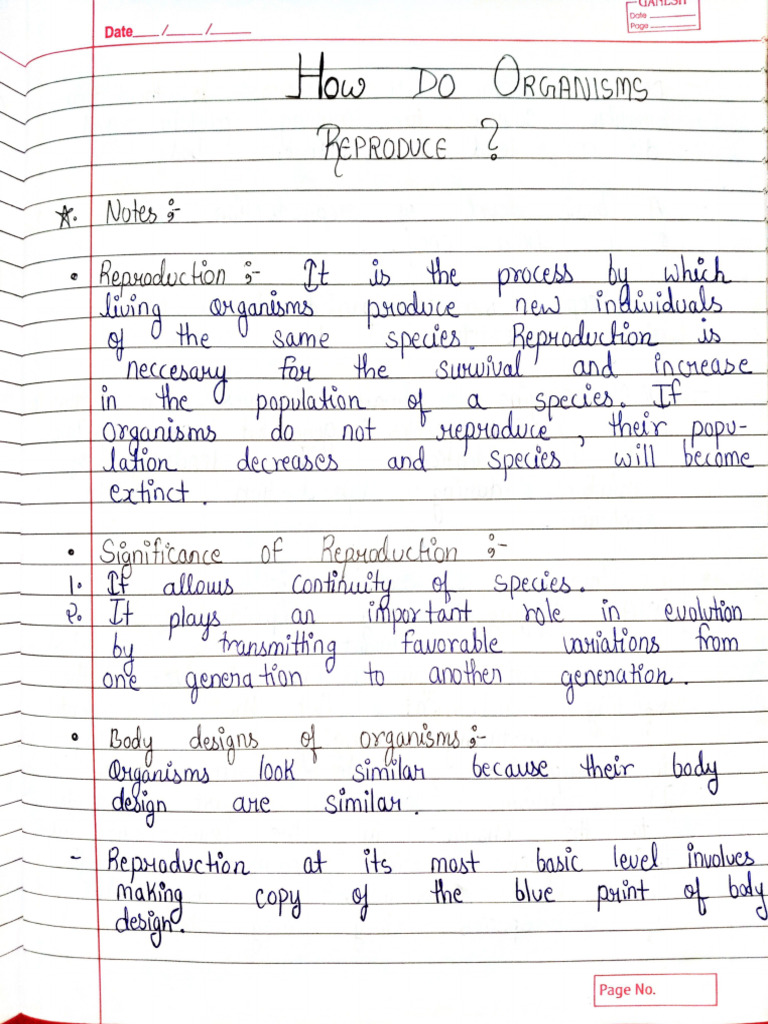 GANESH
Date ___/___/___
Date
Page
How Do Organisms
Reproduce ?
☆. Notes :-
• Reproduction :- It is the process by which
living organisms produce new individuals
of the same species. Reproduction is
neccesary for the survival and increase
in the population of a species. If
organisms do not reproduce, their popu-
lation decreases and species will become
extinct.
• Significance of Reproduction :-
1. If allows continuity of species.
2. It plays an important role in evolution
by transmitting favorable variations from
one generation to another generation.
• Body designs of organisms :-
Organisms look similar because their body
design are similar.
- Reproduction at its most basic level involves
making copy of the blue print of body
design.
Page No.